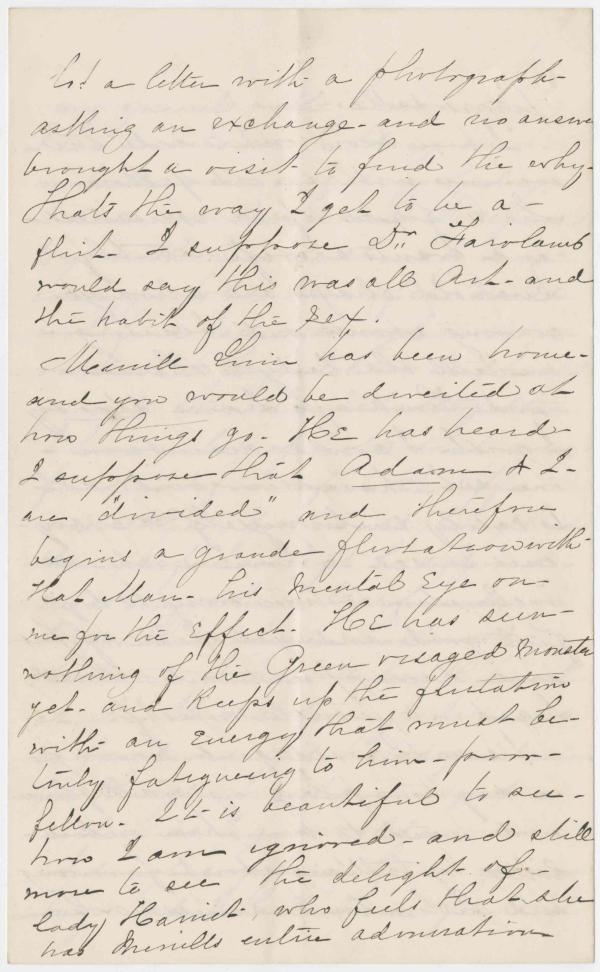 a letter with a photograph-
asking an exchange- and no answer
brought a visit to find the why-
Thats the way I get to be a-
flirt- I suppose Dr. Fairlamb
would say this was all Art- and
the habit of the sex.
has been home-
and you would be diverted at
how things go- HE has heard
I suppose that Adam & I-
are "divided" and therefore
begins a grande flirtation with-
Hat Man- his Mental Eye on-
me for the Effect- HE has seen-
nothing of the Green visaged Monster
yet- and keeps up the flirtation
with- an Energy that must be-
truly fatigueing to him- poor-
fellow- It is beautiful to see-
how I am ignored- and still
more to see the delight of-
lady Harriet who feels that she
has Merrills entire admiration